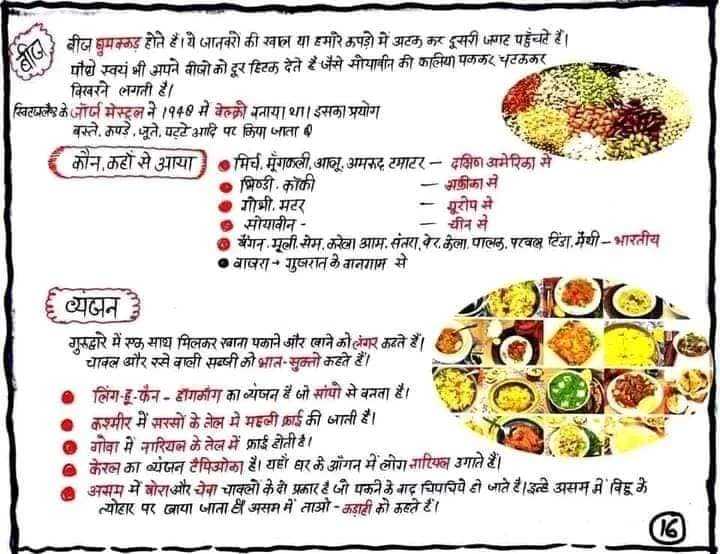 बीज
बीज घुमक्कड़ होते हैं। ये जानवरो की खाल या हमारे कपड़ो में अटक कर दूसरी जगह पहुँचते हैं।
पौधे स्वयं भी अपने बीजो को दूर छिटक देते हैं जैसे सोयाबीन की फालिया पककर चटककर
बिखरने लगती हैं।
स्विटजरलैंड के जॉर्ज मेस्ट्रल ने 1948 मे वेल्क्रो बनाया था। इसका प्रयोग
बस्ते, कपडे, जूते, पट्टे आदि पर किया जाता
कौन, कहाँ से आया
मिर्च, मूँगफली, आलू, अमरूद, टमाटर — दक्षिण अमेरिका से
भिण्डी, कॉफी — अफ्रीका से
गोभी, मटर — यूरोप से
सोयाबीन - — चीन से
बैंगन, मूली, सेम, करेला, आम, संतरा, बेर, केला, पालक, परवल, टिंडा, मैथी — भारतीय
बाजरा → गुजरात के वानगाम से
व्यंजन
गुरुद्वारे में एक साथ मिलकर खाना पकाने और खाने को लंगर कहते हैं।
चावल और रसे वाली सब्जी को भात-सुक्तो कहते हैं।
लिंग-हू-फैन - हाँगकाँग का व्यंजन है जो सांपो से बनता है।
कश्मीर में सरसों के तेल मे मछली फ्राई की जाती है।
गोवा में नारियल के तेल में फ्राई होती है।
केरल का व्यंजन टैपिओका है। यहाँ घर के आँगन में लोग नारियल उगाते हैं।
असम में बोरा और चेवा चावलों के दो प्रकार है जो पकने के बाद चिपचिपे हो जाते है। इन्हे असम में बिहू के
त्योहार पर खाया जाता है। असम में ताओ - कड़ाही को कहते हैं।
16